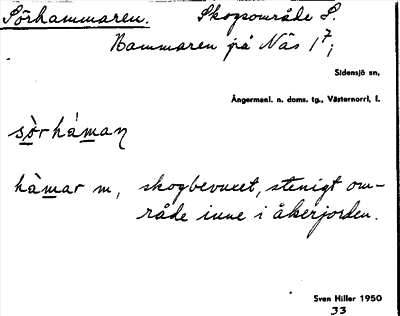 Sörhammaren. Skogsområde S.
Hammaren på Näs 1⁷;
Sidensjö sn,
Ångermanl. n. doms. tg., Västernorrl, l.
sòrháman
hàmar m, skogbevuxet, stenigt om-
råde inne i åkerjorden.
Sven Hiller 1950
33